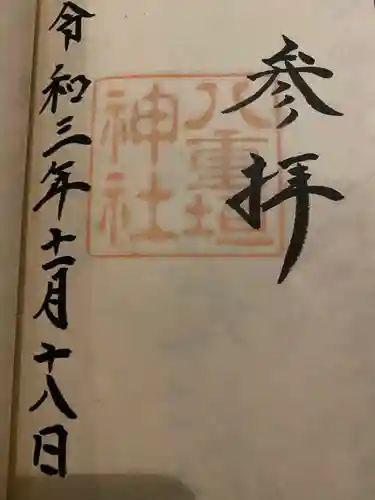 参拝
八重垣
神社
令和三年十一月十八日